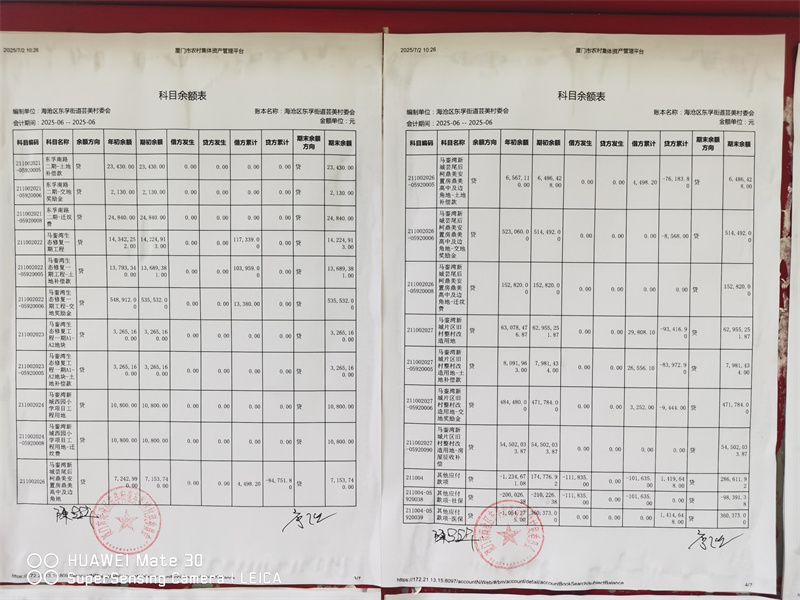 2025/7/2 10:26
厦门市农村集体资产管理平台
科目余额表
编制单位：海沧区东孚街道芸美村委会
账本名称：海沧区东孚街道芸美村委会
会计期间：2025-06 -- 2025-06
金额单位：元
科目编码 科目名称 余额方向 年初余额 期初余额 借方发生 贷方发生 借方累计 贷方累计 期末余额方向 期末余额
211002021-05920005 东孚南路二期-土地补偿款 贷 23,430.00 23,430.00 0.00 0.00 0.00 0.00 贷 23,430.00
211002021-05920006 东孚南路二期-交地奖励金 贷 2,130.00 2,130.00 0.00 0.00 0.00 0.00 贷 2,130.00
211002021-05920008 东孚南路二期-迁坟费 贷 24,840.00 24,840.00 0.00 0.00 0.00 0.00 贷 24,840.00
211002022 马銮湾生态修复一期工程 贷 14,342,252.00 14,224,913.00 0.00 0.00 117,339.00 0.00 贷 14,224,913.00
211002022-05920005 马銮湾生态修复一期工程-土地补偿款 贷 13,793,340.00 13,689,381.00 0.00 0.00 103,959.00 0.00 贷 13,689,381.00
211002022-05920006 马銮湾生态修复一期工程-交地奖励金 贷 548,912.00 535,532.00 0.00 0.00 13,380.00 0.00 贷 535,532.00
211002023 马銮湾生态修复工程一期A1-A2地块 贷 3,265,160.00 3,265,160.00 0.00 0.00 0.00 0.00 贷 3,265,160.00
211002023-05920005 马銮湾生态修复工程一期A1-A2地块-土地补偿款 贷 3,265,160.00 3,265,160.00 0.00 0.00 0.00 0.00 贷 3,265,160.00
211002024 马銮湾新城西园小学项目工程用地 贷 10,800.00 10,800.00 0.00 0.00 0.00 0.00 贷 10,800.00
211002024-05920008 马銮湾新城西园小学项目工程用地-迁坟费 贷 10,800.00 10,800.00 0.00 0.00 0.00 0.00 贷 10,800.00
211002026 马銮湾新城芸尾后柯鼎美安置房鼎美高中及边角地 贷 7,242,990.00 7,153,740.00 0.00 0.00 4,498.20 -84,751.80 贷 7,153,740.00
2025/7/2 10:26
厦门市农村集体资产管理平台
科目余额表
编制单位：海沧区东孚街道芸美村委会
账本名称：海沧区东孚街道芸美村委会
会计期间：2025-06 -- 2025-06
金额单位：元
科目编码 科目名称 余额方向 年初余额 期初余额 借方发生 贷方发生 借方累计 贷方累计 期末余额方向 期末余额
211002026-05920005 马銮湾新城芸尾后柯鼎美安置房鼎美高中及边角地-土地补偿款 贷 6,567,110.00 6,486,428.00 0.00 0.00 4,498.20 -76,183.80 贷 6,486,428.00
211002026-05920006 马銮湾新城芸尾后柯鼎美安置房鼎美高中及边角地-交地奖励金 贷 523,060.00 514,492.00 0.00 0.00 0.00 -8,568.00 贷 514,492.00
211002026-05920008 马銮湾新城芸尾后柯鼎美安置房鼎美高中及边角地-迁坟费 贷 152,820.00 152,820.00 0.00 0.00 0.00 0.00 贷 152,820.00
211002027 马銮湾新城片区旧村整村改造用地 贷 63,078,476.87 62,955,251.87 0.00 0.00 29,808.10 -93,416.90 贷 62,955,251.87
211002027-05920005 马銮湾新城片区旧村整村改造用地-土地补偿款 贷 8,091,963.00 7,981,434.00 0.00 0.00 26,556.10 -83,972.90 贷 7,981,434.00
211002027-05920006 马銮湾新城片区旧村整村改造用地-交地奖励金 贷 484,480.00 471,784.00 0.00 0.00 3,252.00 -9,444.00 贷 471,784.00
211002027-05920090 马銮湾新城片区旧村整村改造用地-房屋征收补偿 贷 54,502,033.87 54,502,033.87 0.00 0.00 0.00 0.00 贷 54,502,033.87
211004 其他应付款项 贷 -1,234,671.08 174,776.92 -111,835.00 0.00 -101,635.00 1,419,648.00 贷 286,611.92
211004-05920038 其他应付款项-社保 贷 -111,835.00 0.00 -101,635.00 0.00 贷 -98,391.38
211004-05920039 其他应付款项-医保 贷 0.00 0.00 0.00 1,414,648.00 贷 360,373.00
https://172.21.13.15:8097/accountN/Web/#/bm/account/detail/accountBookSearch/subjectBalance
4/7
HUAWEI Mate 30
SuperSensing Camera | LEICA